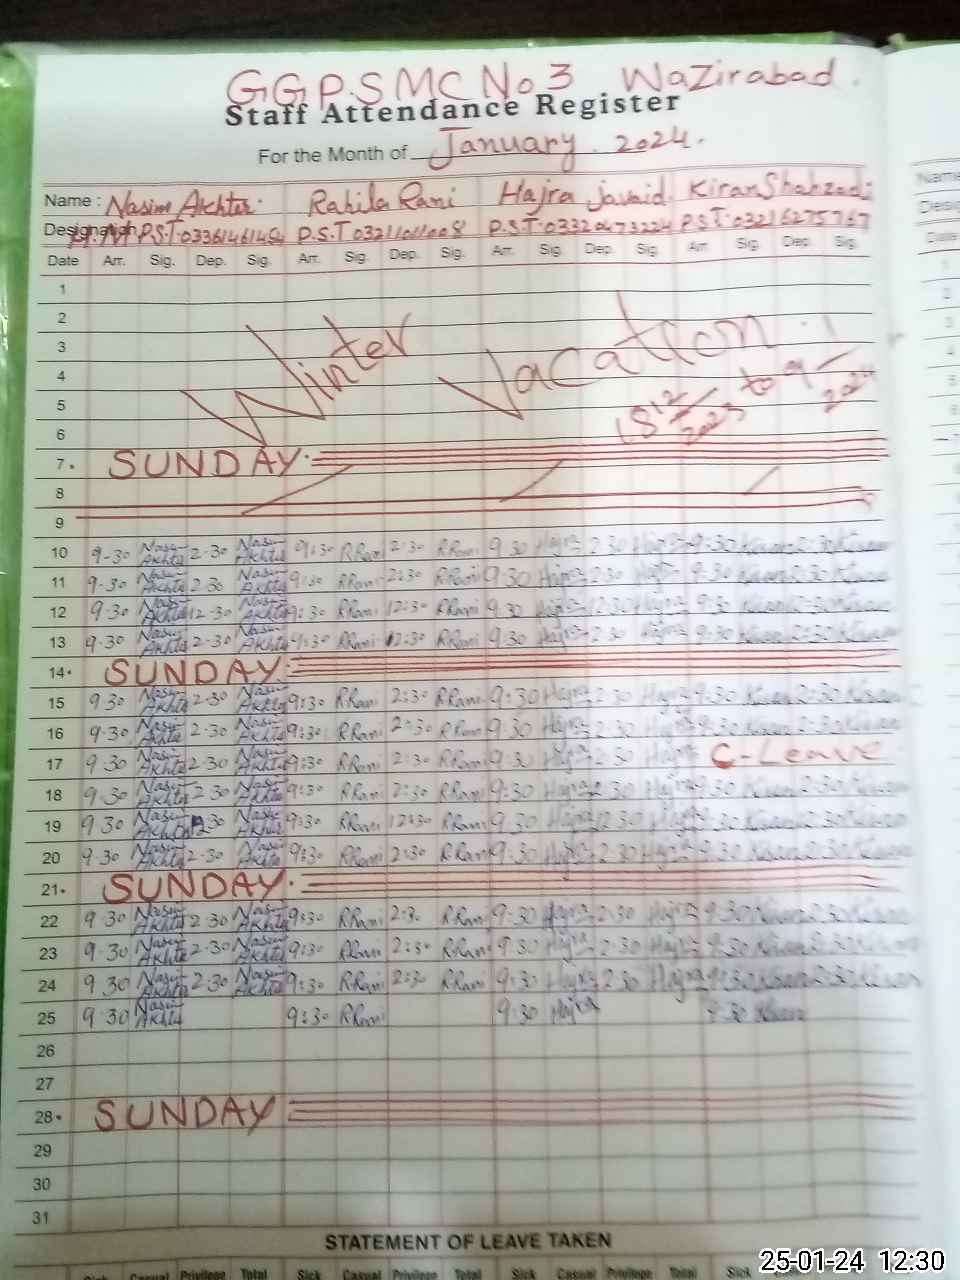 GGPSMC No 3 Wazirabad.
Staff Attendance Register
For the Month of January. 2024.
Name : Nasim Akhtar. Rahila Rani Hajra javaid. Kiran Shahzadi
Designation P.S.T. P.S.T P.S.T. P.S.T.
Date Arr. Sig. Dep. Sig. Arr. Sig. Dep. Sig. Arr. Sig. Dep. Sig. Arr. Sig. Dep. Sig.
1
2
3 Winter Vacation
4
5 18 12/2023 to 9 1/2024
6
7. SUNDAY.
8
9
10 9-30 Nasim Akhtar 2-30 Nasim Akhtar 9:30 RRani 2:30 RRani 9:30 Hajra 2:30 Hajra 9:30 Kiran 2:30 Kiran
11 9-30 Nasim Akhtar 2-30 Nasim Akhtar 9:30 RRani 2:30 RRani 9:30 Hajra 2:30 Hajra 9:30 Kiran 2:30 Kiran
12 9-30 Nasim Akhtar 12-30 Nasim Akhtar 9:30 RRani 12:30 RRani 9:30 Hajra 12:30 Hajra 9:30 Kiran Kiran
13 9-30 Nasim Akhtar 2-30 Nasim Akhtar 9:30 RRani 2:30 RRani 9:30 Hajra 2:30 Hajra 9:30 Kiran 2:30 Kiran
14. SUNDAY.
15 9 30 Nasim Akhtar 2-30 Nasim Akhtar 9:30 RRani 2:30 RRani 9:30 Hajra 2:30 Hajra 9:30 Kiran 2:30 Kiran
16 9-30 Nasim Akhtar 2-30 Nasim Akhtar 9:30 RRani 2:30 RRani 9:30 Hajra 2:30 Hajra 9:30 Kiran 2:30 Kiran
17 9 30 Nasim Akhtar 2-30 Nasim Akhtar 9:30 RRani 2:30 RRani 9:30 Hajra 2:30 Hajra C-Leave
18 9-30 Nasim Akhtar 2-30 Nasim Akhtar 9:30 RRani 2:30 RRani 9:30 Hajra 2:30 Hajra 9:30 Kiran 2:30 Kiran
19 9 30 Nasim Akhtar 12 30 Nasim Akhtar 9:30 RRani 12:30 RRani 9:30 Hajra 12:30 Hajra 9:30 Kiran Kiran
20 9-30 Nasim Akhtar 2-30 Nasim Akhtar 9:30 RRani 2:30 RRani 9:30 Hajra 2:30 Hajra 9:30 Kiran 2:30 Kiran
21. SUNDAY.
22 9-30 Nasim Akhtar 2-30 Nasim Akhtar 9:30 RRani 2:30 RRani 9:30 Hajra 2:30 Hajra 9:30 Kiran 2:30 Kiran
23 9-30 Nasim Akhtar 2-30 Nasim Akhtar 9:30 RRani 2:30 RRani 9:30 Hajra 2:30 Hajra 9:30 Kiran 2:30 Kiran
24 9 30 Nasim Akhtar 2-30 Nasim Akhtar 9:30 RRani 2:30 RRani 9:30 Hajra 2:30 Hajra 9:30 Kiran 2:30 Kiran
25 9 30 Nasim Akhtar 9:30 RRani 9:30 Hajra 9:30 Kiran
26
27
28. SUNDAY
29
30
31
STATEMENT OF LEAVE TAKEN
Sick Casual Privilege Total Sick Casual Privilege Total Sick Casual Privilege Total Sick
25-01-24 12:30